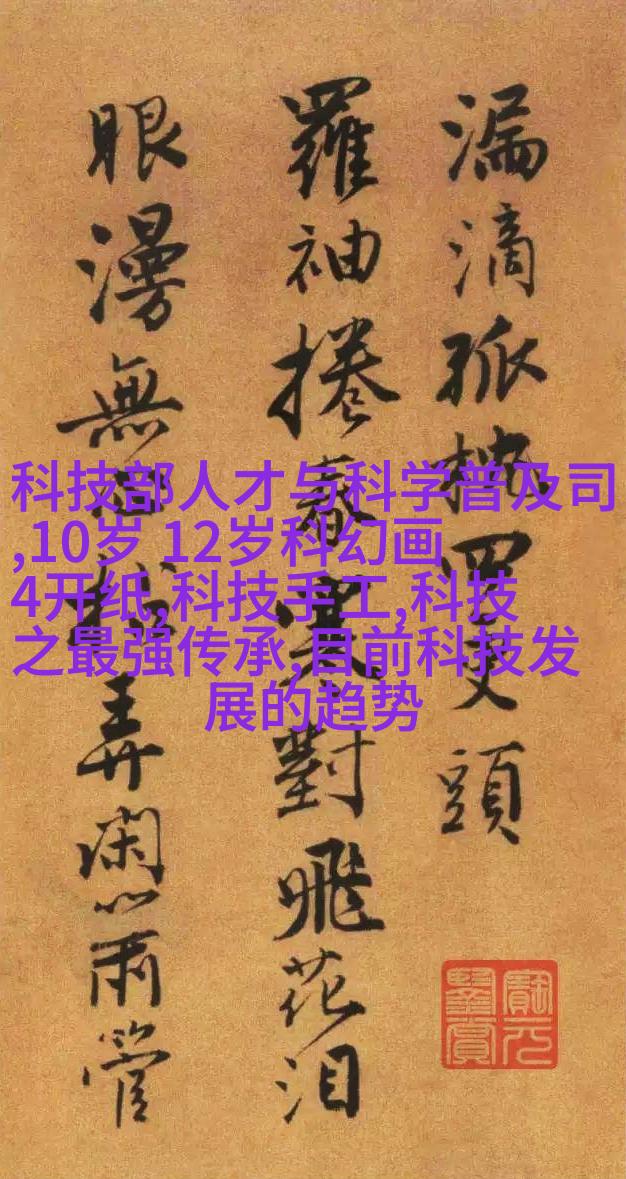 漏滴孤頭
羅袖捲寒對飛花泪
眼漫無弄閑管
科技部人才与科学普及司
,10岁 12岁科幻画
4开纸,科技手工,科技
之最强传承,目前科技发
展的趋势